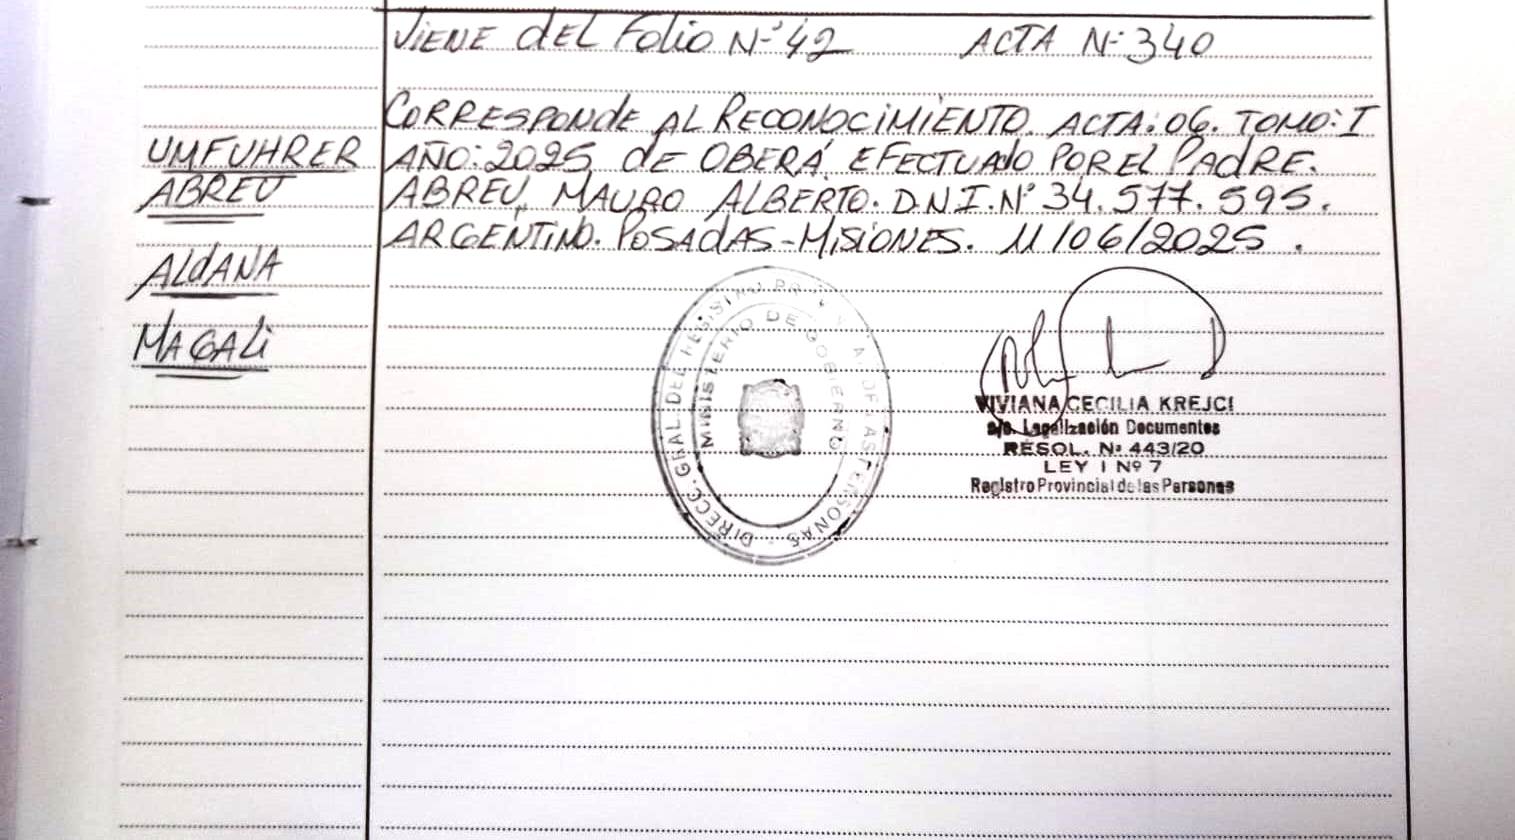 VIENE DEL FOLIO Nº 42 ACTA Nº 340
CORRESPONDE AL RECONOCIMIENTO. ACTA: 06. TOMO: I
AÑO: 2025 DE OBERÁ EFECTUADO POR EL PADRE.
ABREU, MAURO ALBERTO. D.N.I. Nº 34.577.595.
ARGENTINO. POSADAS-MISIONES. 11/06/2025.
UMFUHRER
ABREU
ALDANA
MAGALI
DIRECC. GRAL. DEL REGISTRO PROVINCIAL DE LAS PERSONAS
MINISTERIO DE GOBIERNO
VIVIANA CECILIA KREJCI
a/c. Legalización Documentos
RESOL. Nº 443/20
LEY I Nº 7
Registro Provincial de las Personas